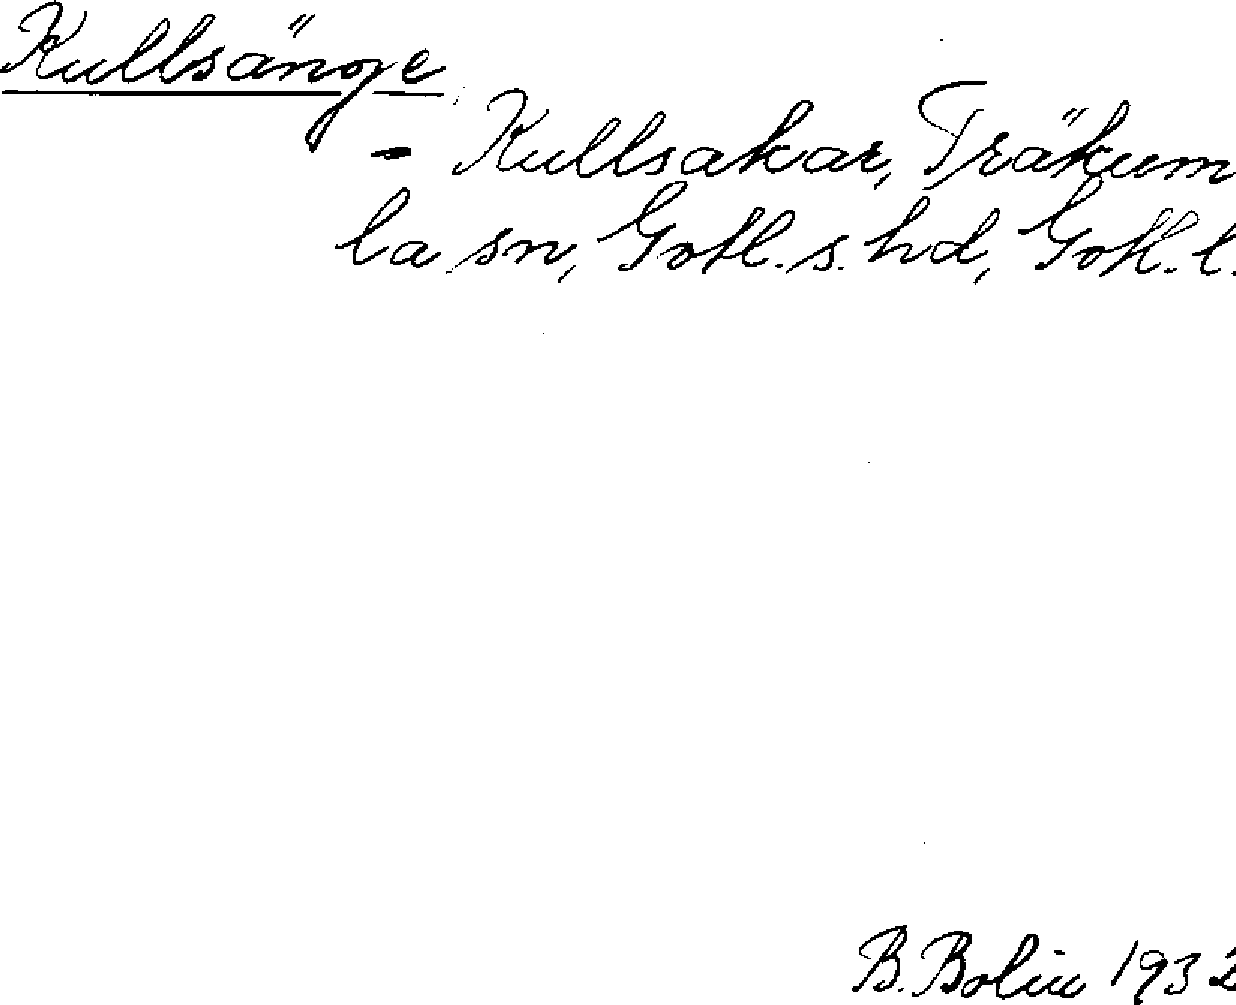 Kullsänge
- Kullsakar, Träkum
la sn, Gotl. s. hd, Gotl. l.
B. Bolin 1932